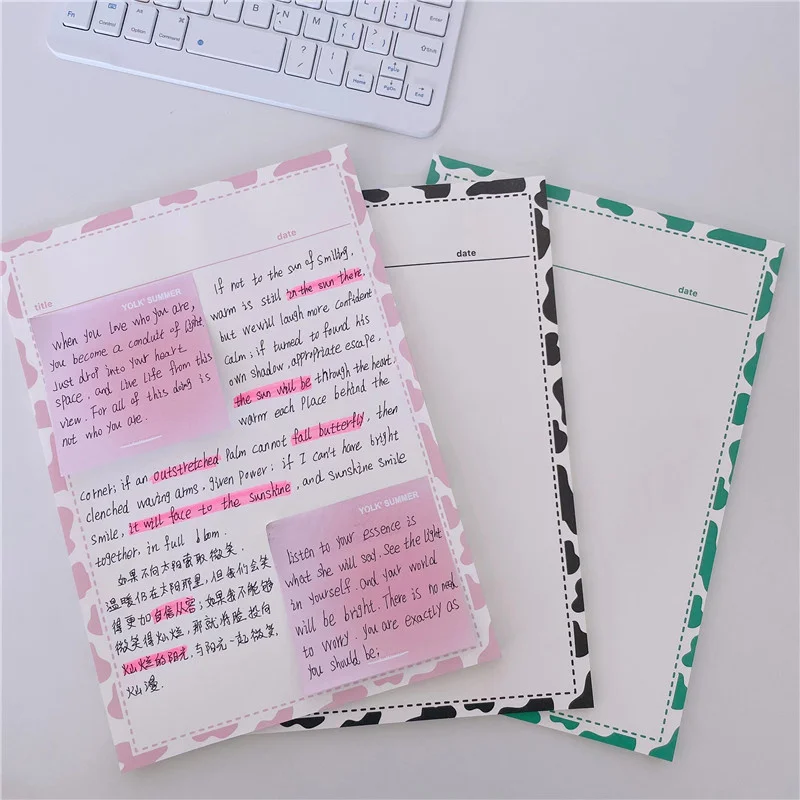 Fn
Control
Alt
Option
⌘
Command
B
N
M
<
,
>
.
?
/
Enter
⇧Shift
Home
PgUp
PgDn
End
date
title
YOLK' SUMMER
When you love who you are,
you become a conduit of light
Just drop into your heart
space, and live life from this
view. For all of this doing is
not who you are.
If not to the sun of smiling,
warm is still in the sun there,
but we will laugh more confident
calm; if turned to found his
own shadow, appropriate escape,
the sun will be through the heart,
warm each place behind the
corner; if an outstretched palm cannot fall butterfly, then
clenched waving arms, given power; if I can't have bright
smile, it will face to the sunshine, and sunshine smile
together, in full bloom.
如果不向太阳索取微笑,
温暖仍在太阳那里,但我们会笑
得更加自信从容;如果我不能够
微笑得灿烂,那就将脸投向
灿烂的阳光,与阳光一起微笑,
灿漫.
YOLK' SUMMER
listen to your essence is
what she will say. See the light
in yourself. and your world
will be bright. There is no need
to worry. you are exactly as
you should be;
date
date